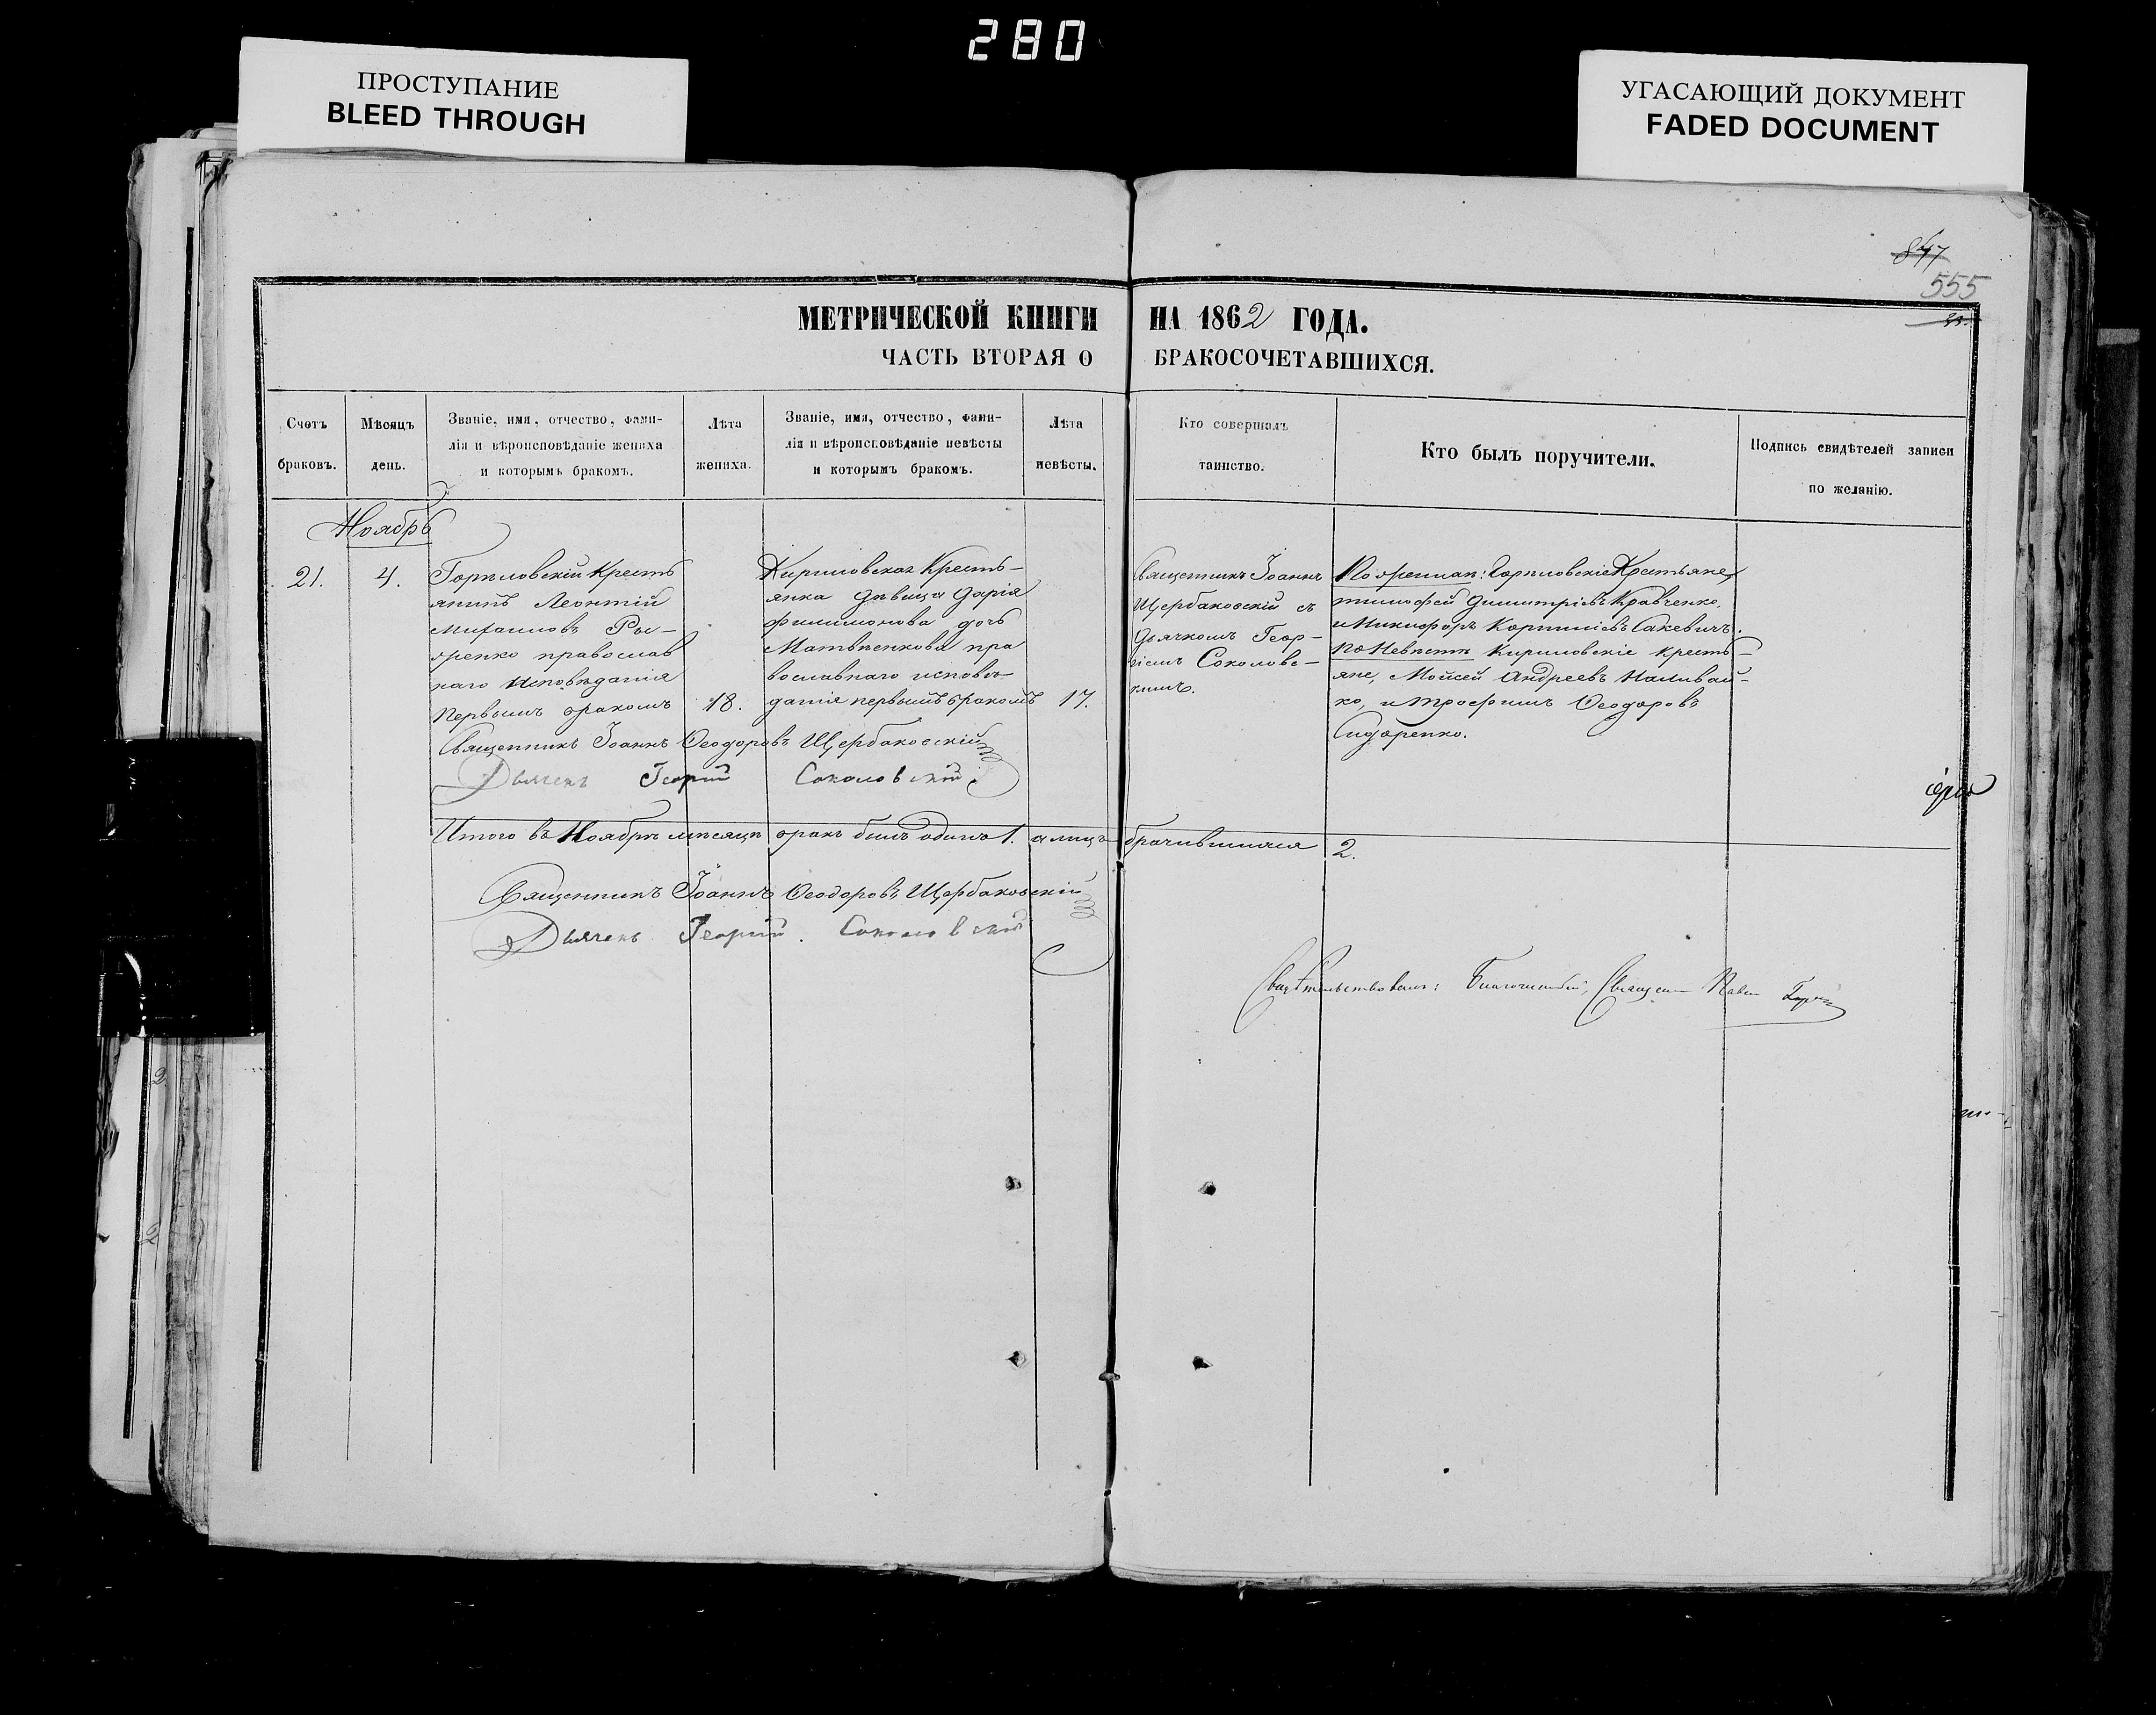 280
ПРОСТУПАНИЕ
BLEED THROUGH
УГАСАЮЩИЙ ДОКУМЕНТ
FADED DOCUMENT
847
555
МЕТРИЧЕСКОЙ КНИГИ НА 1862 ГОДА.
ЧАСТЬ ВТОРАЯ О БРАКОСОЧЕТАВШИХСЯ.
Счетъ браковъ.
Мѣсяцъ день.
Званіе, имя, отчество, фами-
лія и вѣроисповѣданіе жениха
и которымъ бракомъ.
Лѣта жениха.
Званіе, имя, отчество, фами-
лія и вѣроисповѣданіе невѣсты
и которымъ бракомъ.
Лѣта невѣсты.
Кто совершалъ
таинство.
Кто былъ поручители.
Подпись свидѣтелей записи
по желанію.
Ноябрь
21.
4.
Крестъ
янинъ Леонтій
Михаиловъ
православ
наго исповѣданія
первымъ бракомъ
18.
Кириловская Кресть-
янка дѣвица Дарія
Филимонова дочь
Матвѣенкова пра
вославнаго исповѣ-
данія первымъ бракомъ
17.
Священникъ Іоаннъ
Щербаковскій съ
Дьячкомъ Геор-
гіемъ Соколовс-
кимъ.
Крестьяне,
Тимофей Димитріевъ Кравченко,
и Никифоръ
По Невѣстѣ Кириловскіе кресть-
яне, Мойсей Андреевъ Наливай-
ко, и Трофимъ Ѳеодоровъ
Сидоренко.
Священникъ Іоаннъ Ѳеодоровъ Щербаковскій
Дьячекъ Георгій Соколовскій
Итого въ Ноябрѣ мѣсяцѣ бракъ былъ одинъ 1. а лицъ брачившихся 2.
Священникъ Іоаннъ Ѳеодоровъ Щербаковскій
Дьячекъ Георгій Соколовскій
Свидѣтельствовалъ: Благочинный, Священ